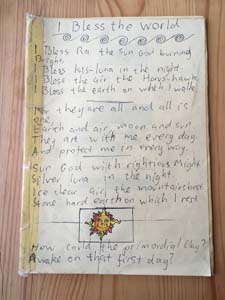 I Bless the World
I Bless Ra the Sun God burning
Bright,
I Bless Isis-luna in the night.
I Bless the air the Horus hawk,
I Bless the earth on which I walk
For they are all and all is
one,
Earth and air, moon and sun
They art with me every day.
And protect me in every way.
Sun God with rightious Might
Silver luna in the night.
Ice clear air, the mountains best
Stone hard earth on which I rest
How could the primordial Clay?
Awake on that first day?